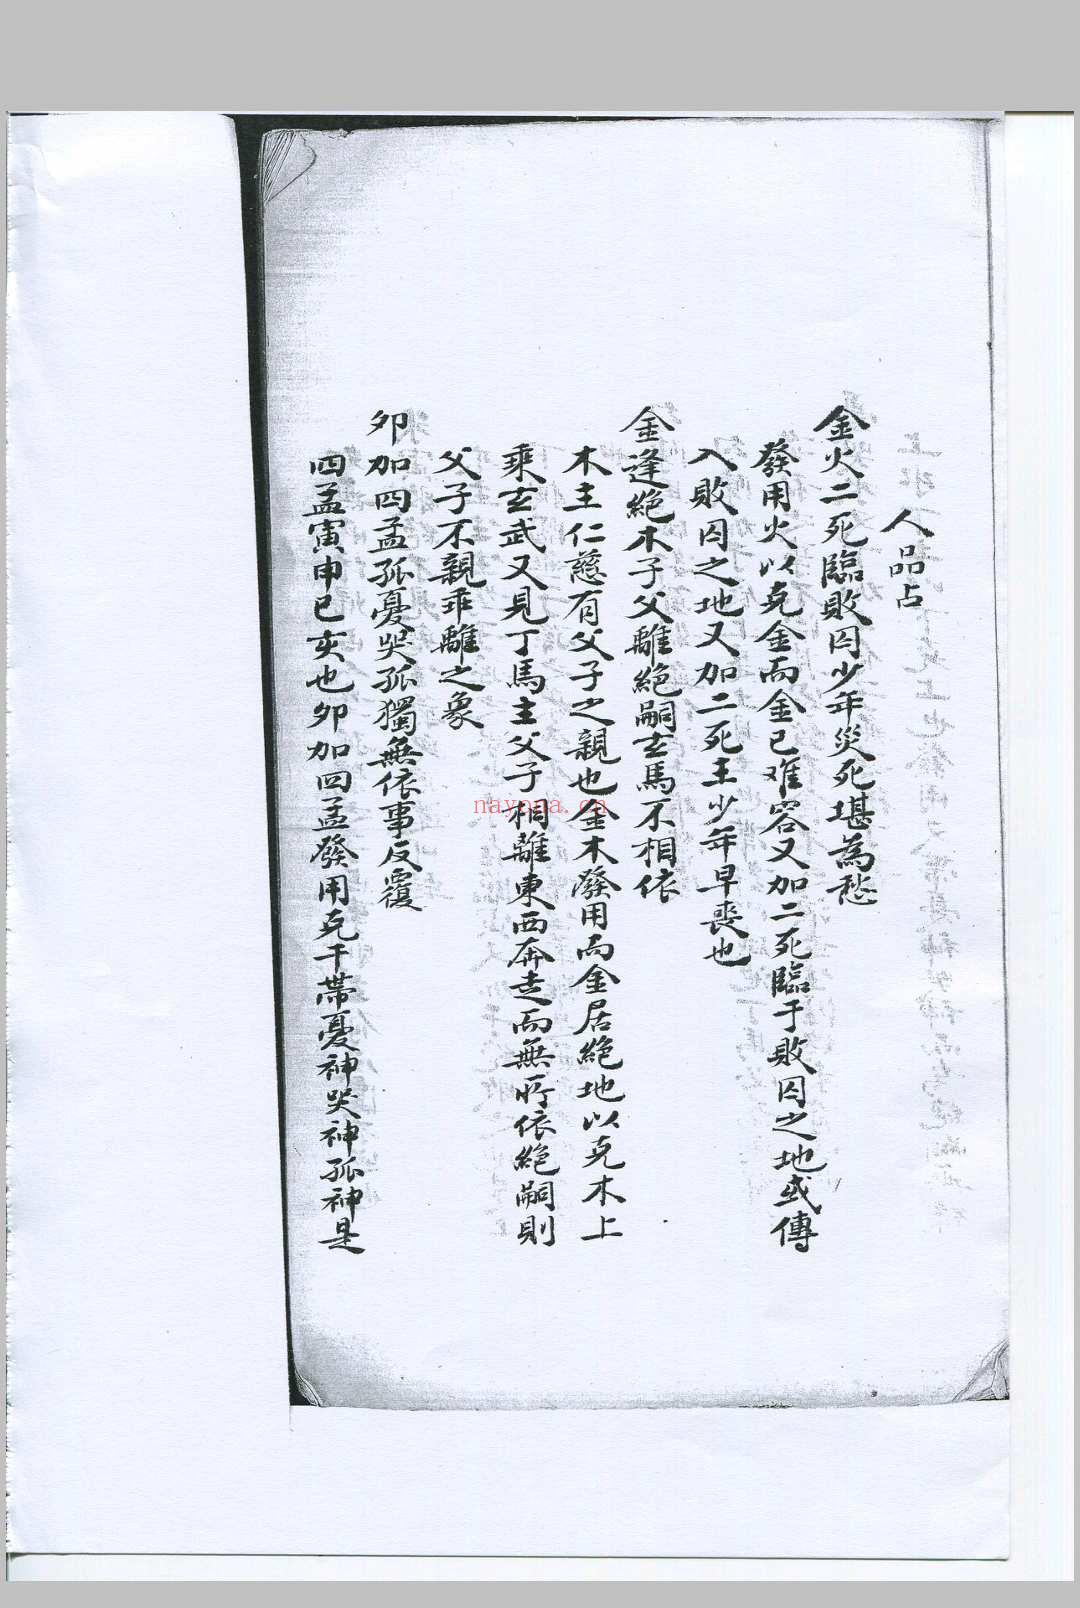 人品占
金火二死臨敗囚少年災死堪為愁
發用火以克金而金已难容又加二死臨于敗囚之地或傳
入敗囚之地又加二死主少年早喪也
金逢絕木子父離絕嗣玄馬不相依
木主仁慈有父子之親也金木發用而金居絕地以克木上
乘玄武又見丁馬主父子相離東西奔走而無所依絕嗣則
父子不親乖離之象
卯加四孟孤憂哭孤獨無依事反覆
四孟寅申巳亥也卯加四孟發用克干帶憂神哭神孤神是
nayona.cn